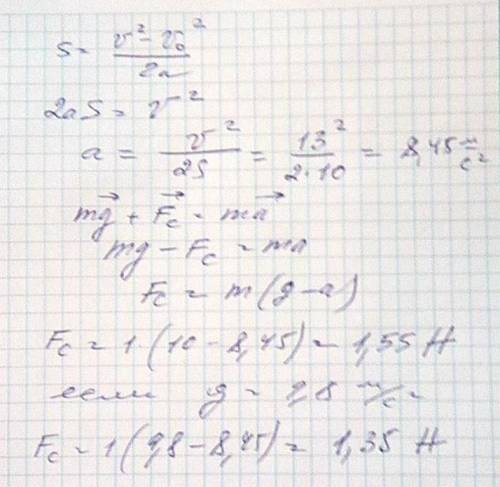 S = (v² - v₀²) / 2a
2aS = v²
a = v² / 2S = 13² / 2·10 = 8,45 м/с²
mg⃗ + F⃗с = ma⃗
mg - Fс = ma
Fс = m(g-a)
Fс = 1 · (10 - 8,45) = 1,55 Н
если g = 9,8 м/с²
Fс = 1 (9,8 - 8,45) = 1,35 Н